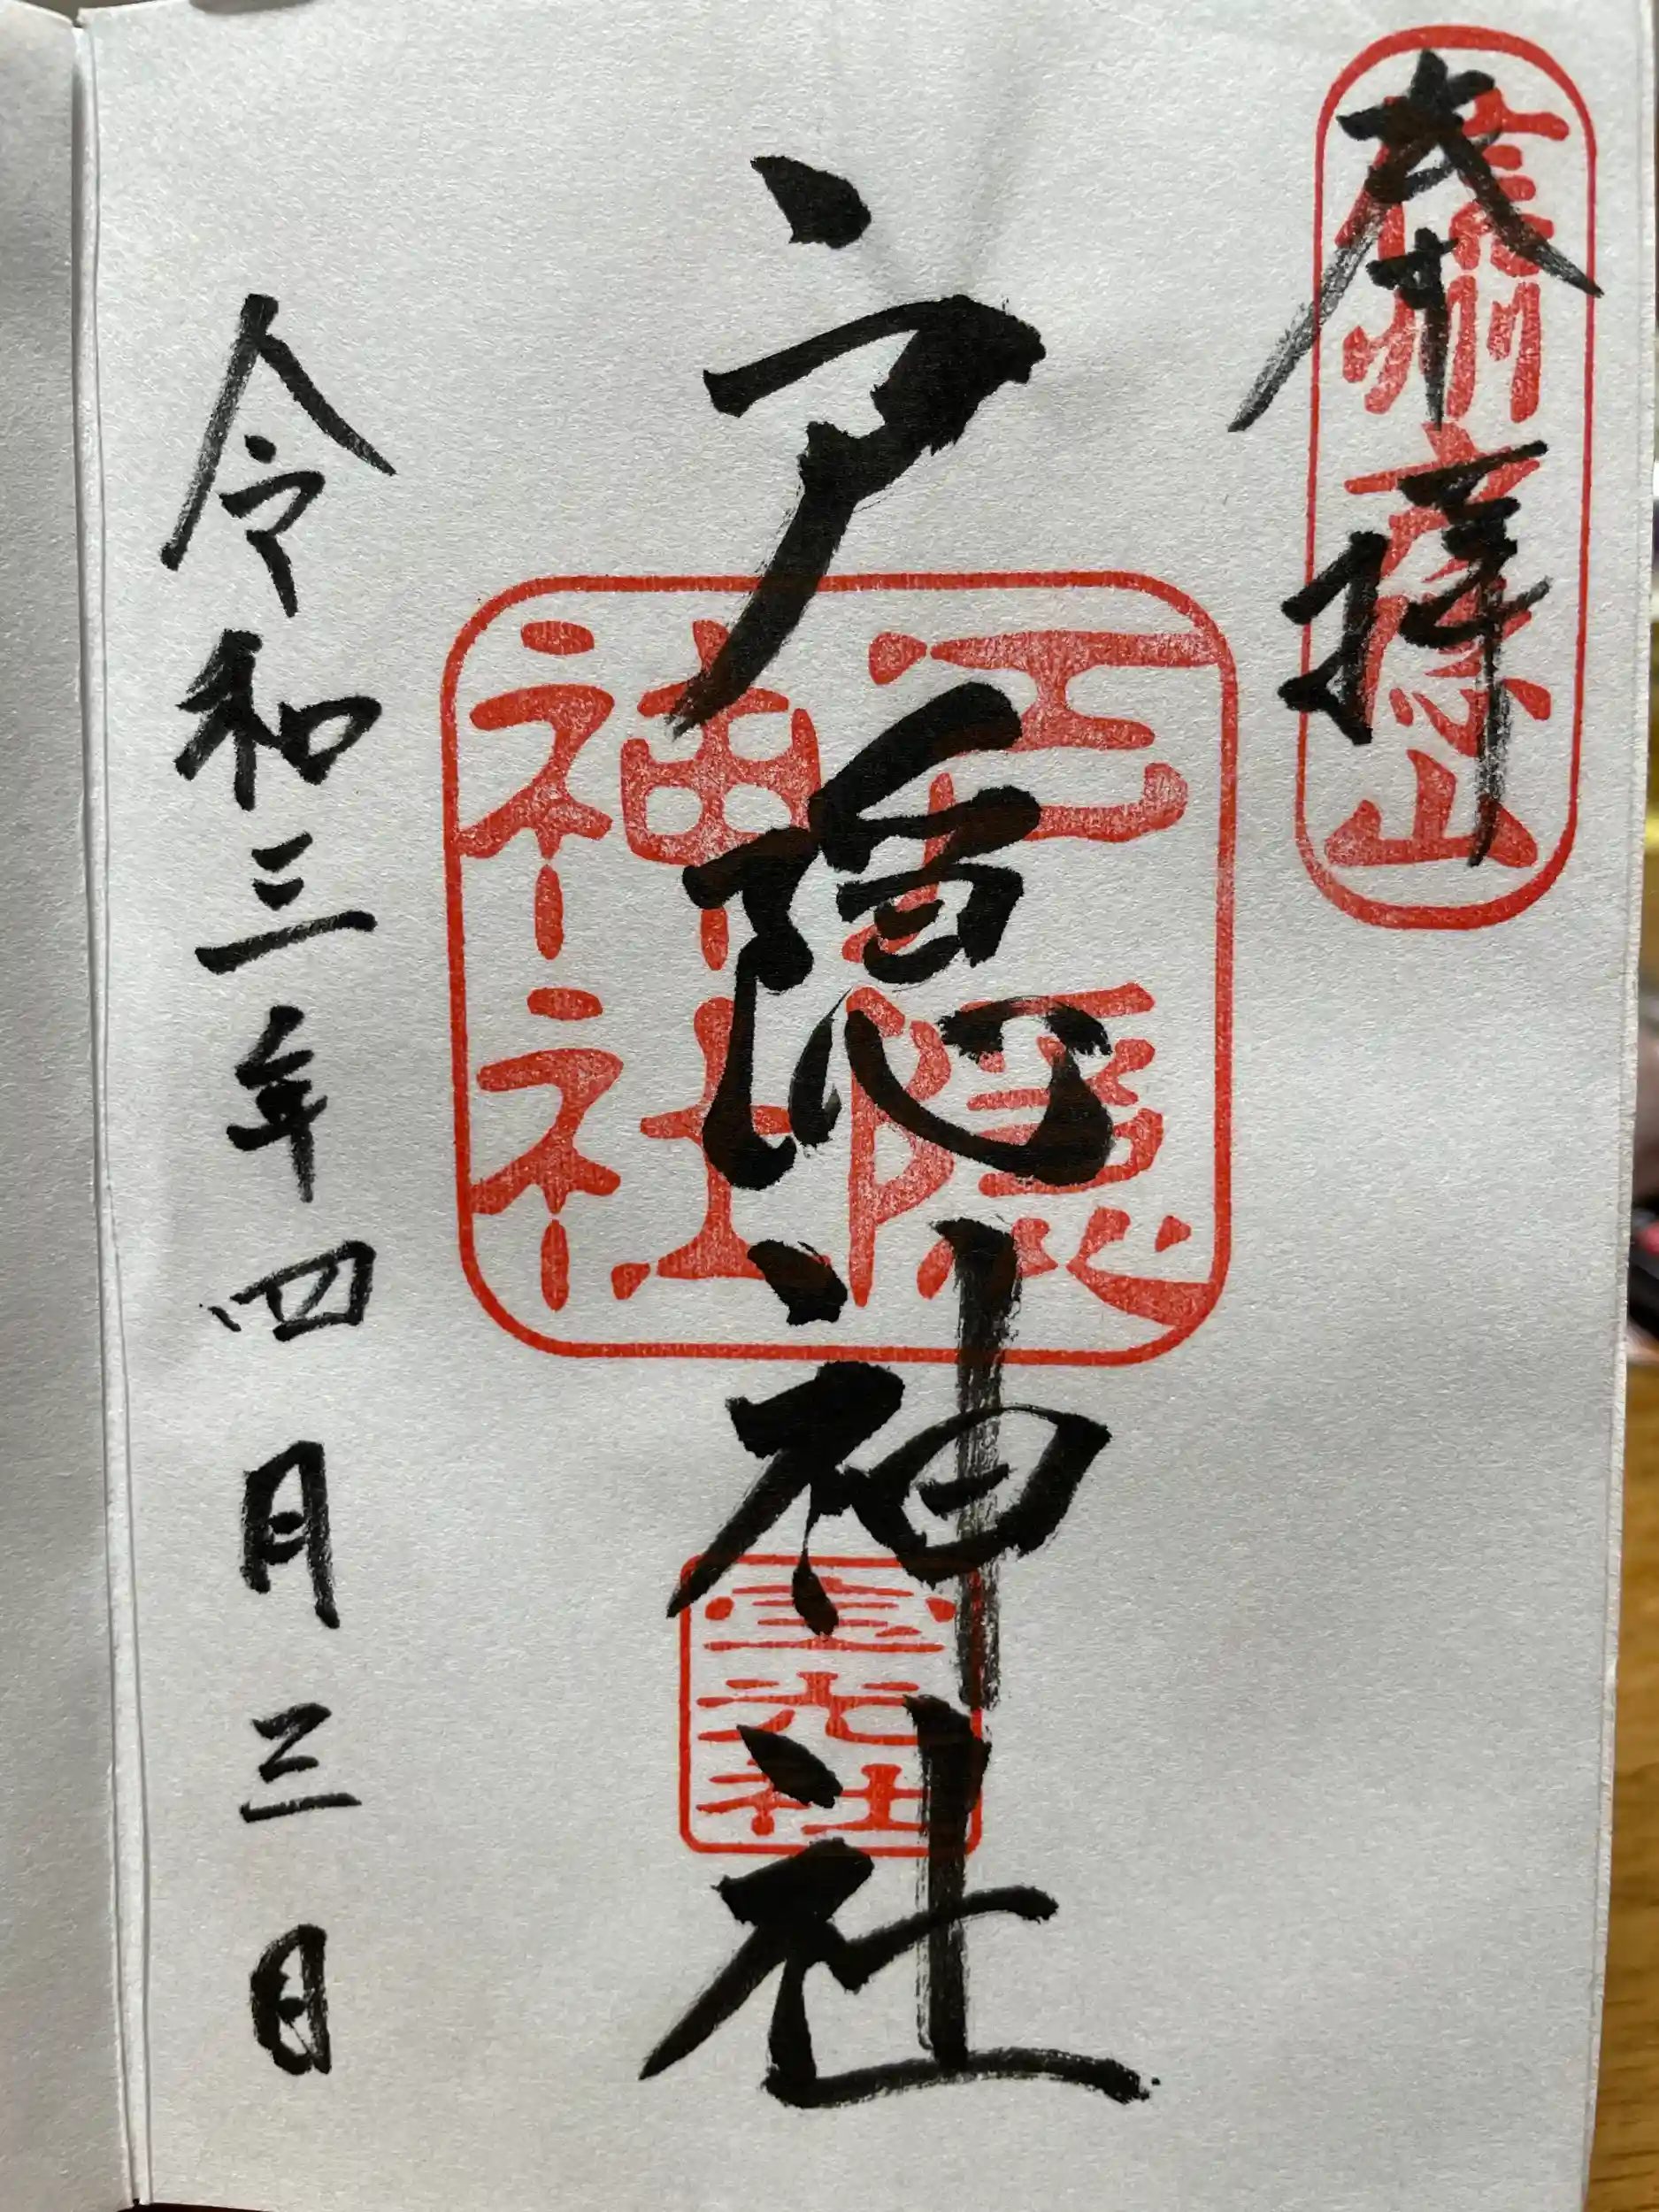 奉拝
信州戸隠山
戸隠神社
戸隠
神社
宝光社
令和三年四月三日